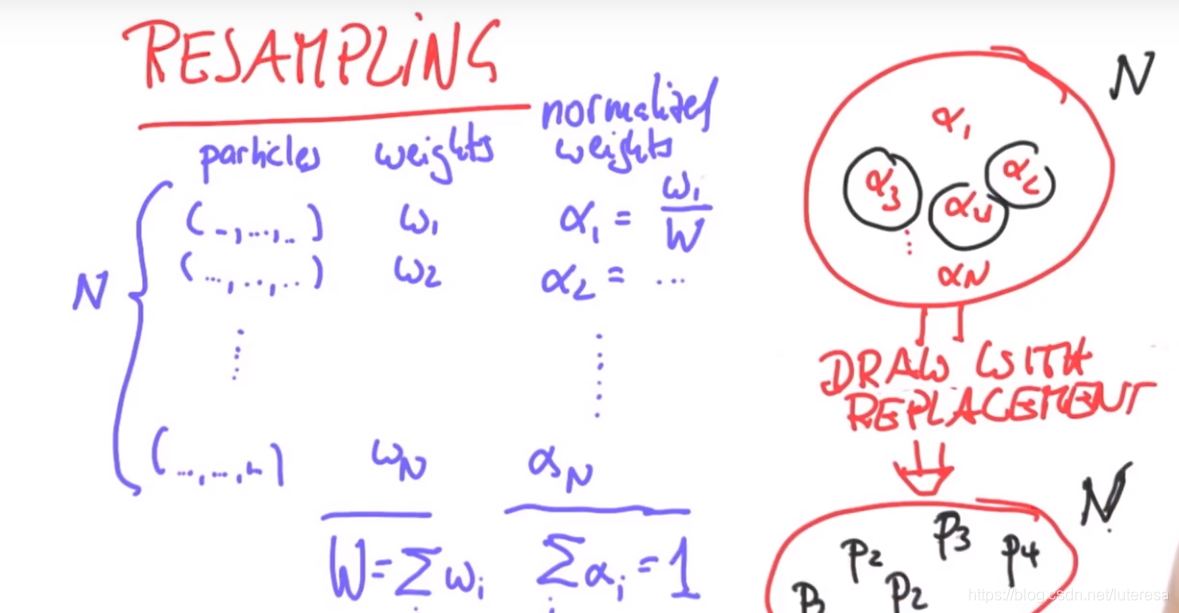 RESAMPLING
particles weights normalized weights
N
(-,...,..) ω₁ α₁ = ω₁/W
(...,..,..) ω₂ α₂ = ...
(...,...,..) ωN αN
W=Σωᵢ Σαᵢ=1
N
α₁
α₃ α₄ α₂
αN
DRAW WITH
REPLACEMENT
N
P₂ P₃ P₄
P₂
https://blog.csdn.net/luteresa